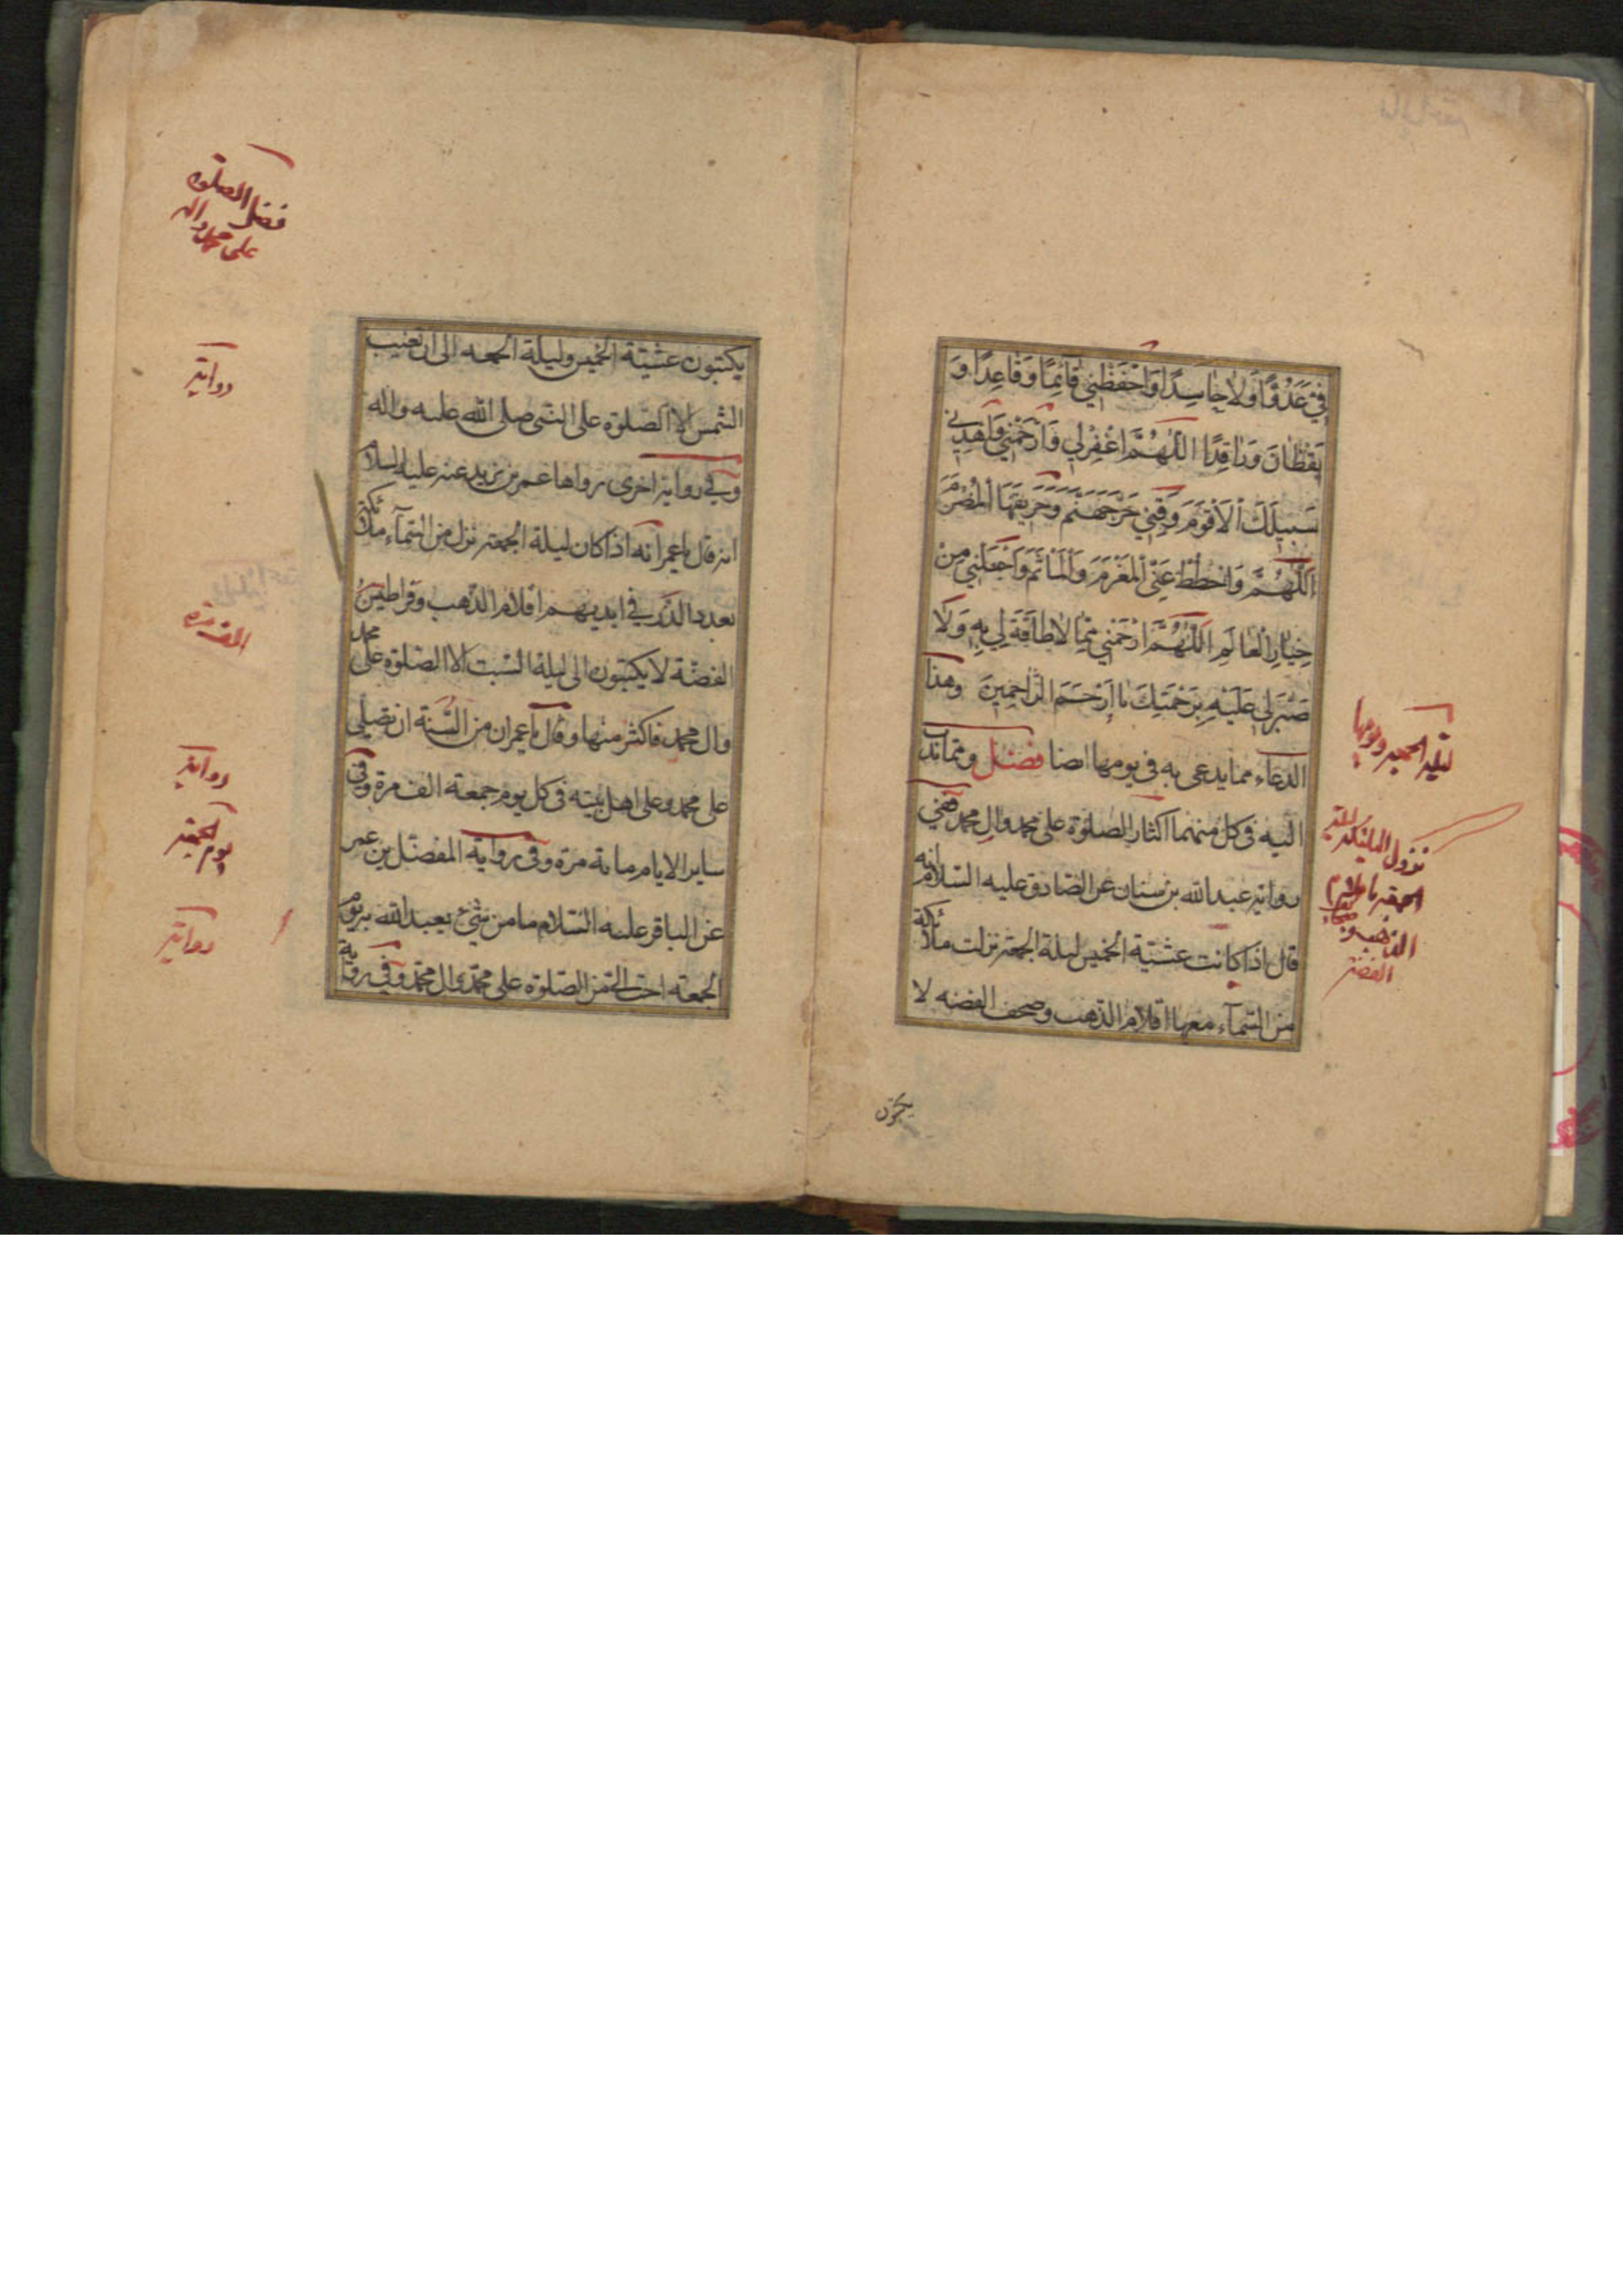 فِيَّ عَدُوًّا وَلَا حَاسِدًا وَاحْفَظْنِي قَائِمًا وَقَاعِدًا وَ
يَقْظَانَ وَرَاقِدًا اللَّهُمَّ اغْفِرْ لِي وَارْحَمْنِي وَاهْدِنِي
سَبِيلَكَ الْأَقْوَمَ وَقِنِي حَرَّ جَهَنَّمَ وَحَرِيقَهَا الْمُضْرَمَ
اللَّهُمَّ وَاحْطُطْ عَنِّي الْمَغْرَمَ وَالْمَأْثَمَ وَاجْعَلْنِي مِنْ
خِيَارِ الْعَالَمِ اللَّهُمَّ ارْحَمْنِي مِمَّا لَا طَاقَةَ لِي بِهِ وَلَا
صَبْرَ لِي عَلَيْهِ بِرَحْمَتِكَ يَا أَرْحَمَ الرَّاحِمِينَ وهذا
الدعاء مما يدعى به فى يومها ايضا فصل ومما ندب
اليه فى كل منهما اكثار الصلوة على محمد وال محمد ففي
رواية عبدالله بن سنان عن الصادق عليه السلام انه
قال اذا كانت عشية الخميس ليلة الجمعة نزلت ملائكة
من السمآء معها اقلام الذهب وصحف الفضه لا
يكتبون
ليلة الجمعة ويومها
نزول الملئكة ليلة
الجمعة باقلام
الذهب و
الفضة
يكتبون عشية الخميس وليلة الجمعه الى ان تغيب
الشمس الا الصلوة على النبى صلى الله عليه واله
وفي رواية اخرى رواها عمر بن يزيد عنه عليه السلام
انه قال يا عمر انه اذا كان ليلة الجمعة نزل من السمآء ملائكة
بعدد الذر في ايديهم اقلام الذهب وقراطيس
الفضة لا يكتبون الى ليلة السبت الا الصلوة على محمد
وال محمد فاكثر منها وقال يا عمر ان من السنة ان تصلى
على محمد وعلى اهل بيته فى كل يوم جمعة الف مرة وفى
ساير الايام مائة مرة وفى رواية المفضل بن عمر
عن الباقر عليه السلام ما من شئ يعبد الله به يوم
الجمعة احب الى من الصلوة على محمد وال محمد وفي رواية
فضل الصلوة
على محمد واله
رواية
الف مرة
رواية
يوم الجمعة
رواية